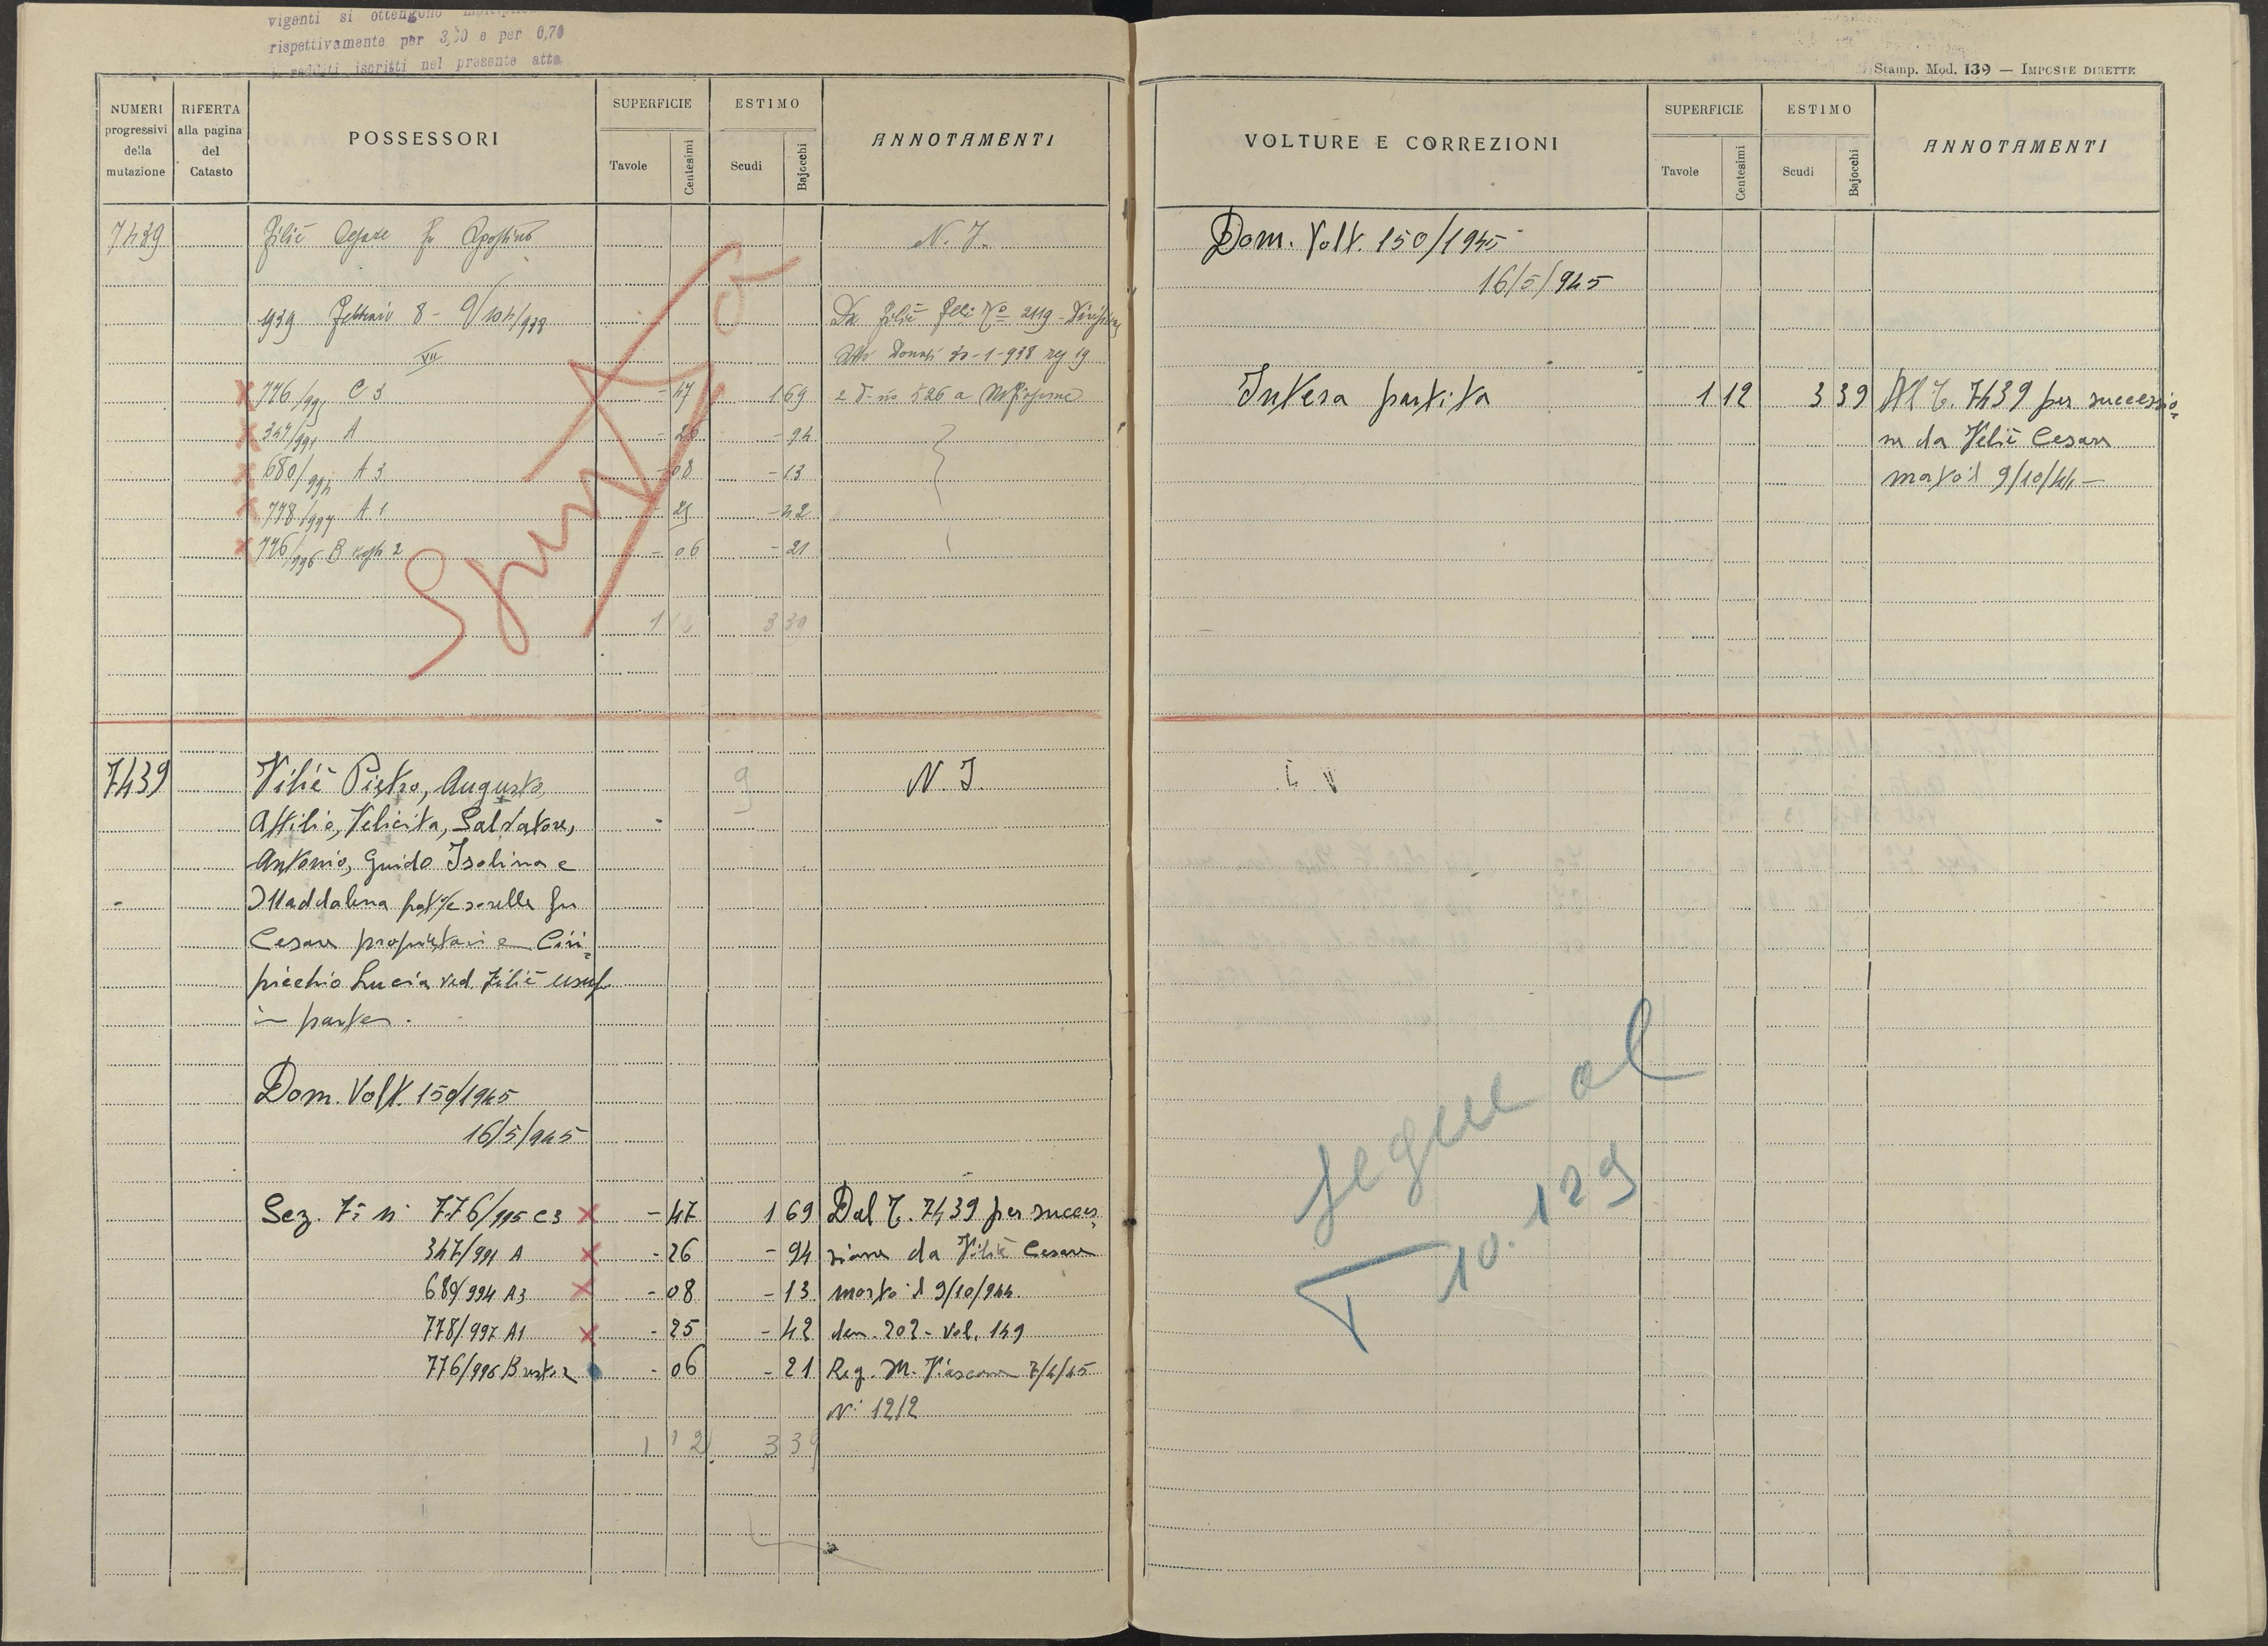 vigenti si ottengono
rispettivamente per 3,30 e per 0,70
redditi iscritti nel presente atto
NUMERI progressivi della mutazione
RIFERTA alla pagina del Catasto
POSSESSORI
SUPERFICIE
Tavole
Centesimi
ESTIMO
Scudi
Bajocchi
ANNOTAMENTI
7439 Filiè Cesare fu Agostino N. I.
939 Febbraio 8 -
VII
Da Filiè
Atto Donati 30-1-938 reg 19
776/995 C 3 - 47 1 69
347/991 A - 26 - 94
680/994 A 3 - 08 - 13
778/997 A 1 - 25 - 42
776/996 B 2 - 06 - 21
1 12 3 39
Spunta
7439 Filiè Pietro, Augusto, N. I.
Attilio, Felicita, Salvatore,
Antonio, Guido Isolina e
Maddalena frat/e sorelle fu
Cesare proprietari e Ciri=
picchio Lucia ved. Filiè usuf
in parte.
Dom. Volt. 150/1945
16/5/945
Sez. 7ª n. 776/995 C3 - 47 1 69 Dal T. 7439 per succes=
347/991 A - 26 - 94 sione da Filiè Cesare
680/994 A3 - 08 - 13 morto il 9/10/944.
778/997 A1 - 25 - 42 den. 202 - vol. 149
776/996 B resto 2 - 06 - 21 Reg. M. Fiascone 7/4/45
N. 1212
1 12 3 39
Stamp. Mod. 139 — IMPOSTE DIRETTE
VOLTURE E CORREZIONI
SUPERFICIE
Tavole
Centesimi
ESTIMO
Scudi
Bajocchi
ANNOTAMENTI
Dom. Volt. 150/1945
16/5/945
Intera partita 1 12 3 39 Al T. 7439 per successio=
ne da Filiè Cesare
morto il 9/10/44 —
segue al
T 10.129